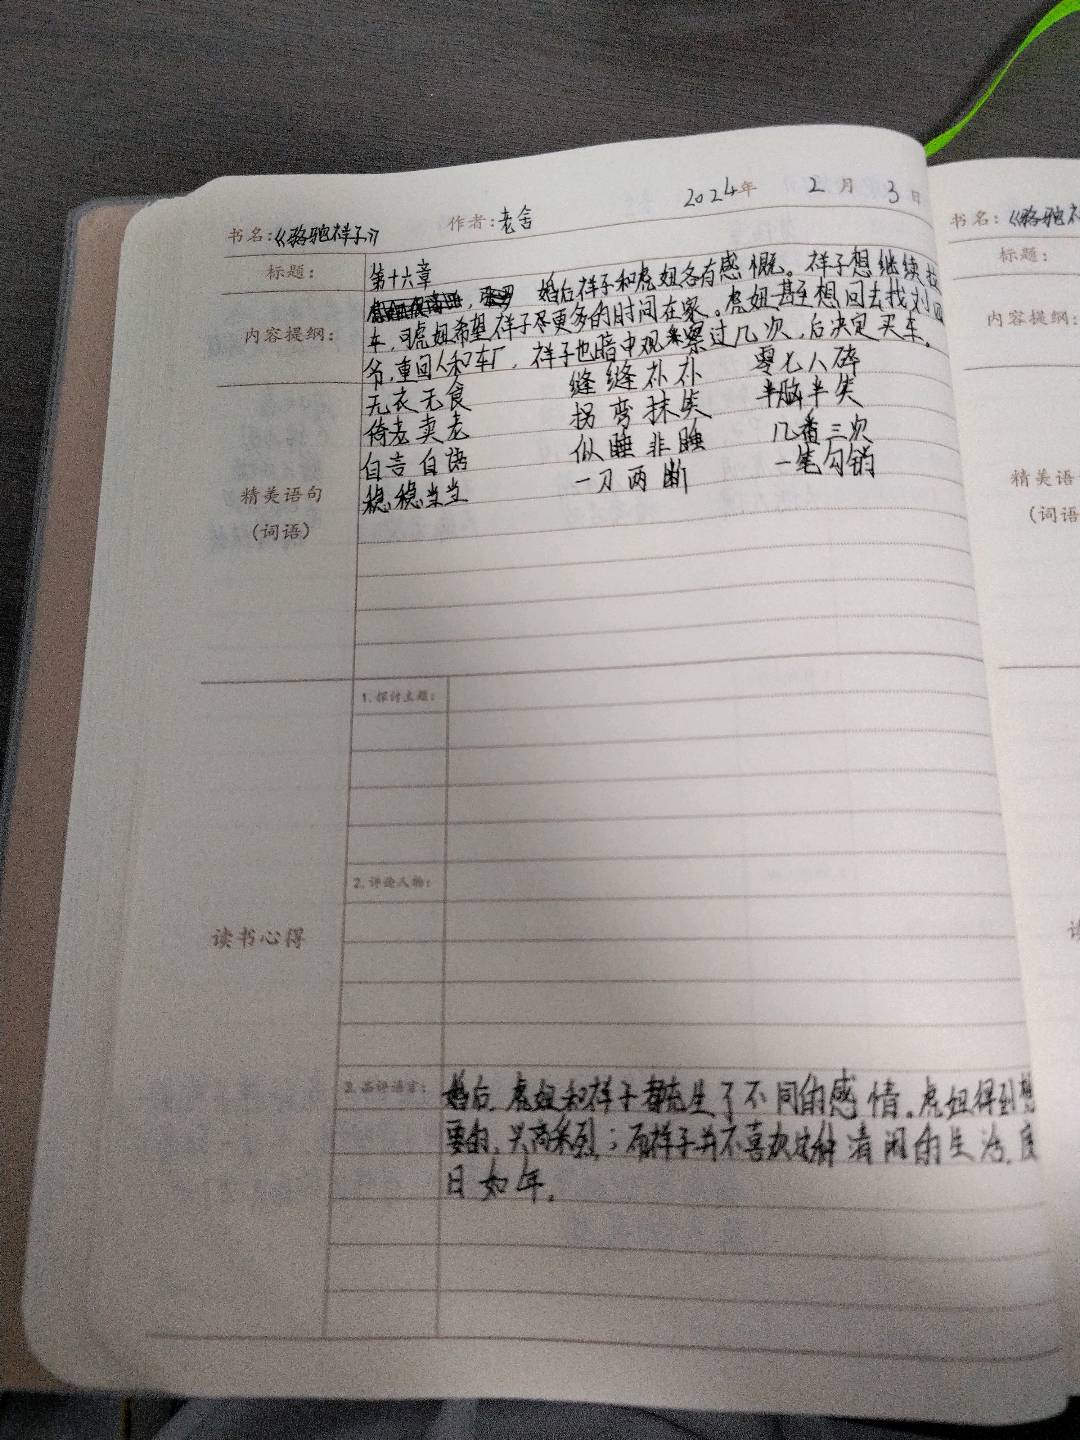 2024年 2月 3日
书名:《骆驼祥子》 作者:老舍
标题: 第十六章
婚后祥子和虎妞各有感慨。祥子想继续拉
内容提纲: 车,可虎妞希望祥子尽更多的时间在家。虎妞甚至想回去找刘四
爷,重回人和车厂,祥子也暗中观察过几次,后决定买车。
无衣无食 缝缝补补 零七八碎
倚老卖老 拐弯抹角 半脑半笑
自言自语 似睡非睡 几番三次
稳稳当当 一刀两断 一笔勾销
精美语句
(词语)
读书心得
1.探讨主题:
2.评论人物:
3.品评语言: 婚后,虎妞和祥子都产生了不同的感情。虎妞得到想
要的,兴高采烈;而祥子并不喜欢这种清闲的生活,度
日如年。
书名:《骆驼祥
标题:
内容提纲:
精美语
(词语